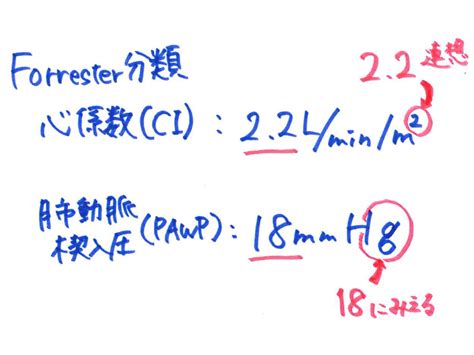 Forrester分類
2.2連想
心係数(CI): 2.2L/min/m²
肺動脈
楔入圧(PAWP): 18mmHg
18にみえる